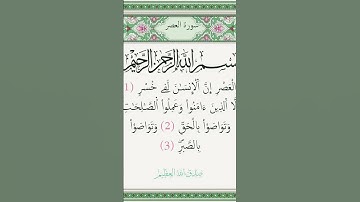 سورة العصر
بسم الله الرحمن الرحيم
لْعَصْرِ إِنَّ ٱلْإِنسَٰنَ لَفِى خُسْرٍ (1)
لَّا ٱلَّذِينَ ءَامَنُوا۟ وَعَمِلُوا۟ ٱلصَّٰلِحَٰتِ
وَتَوَاصَوْا۟ بِٱلْحَقِّ (2) وَتَوَاصَوْا۟
بِٱلصَّبْرِ (3)
صدق الله العظيم